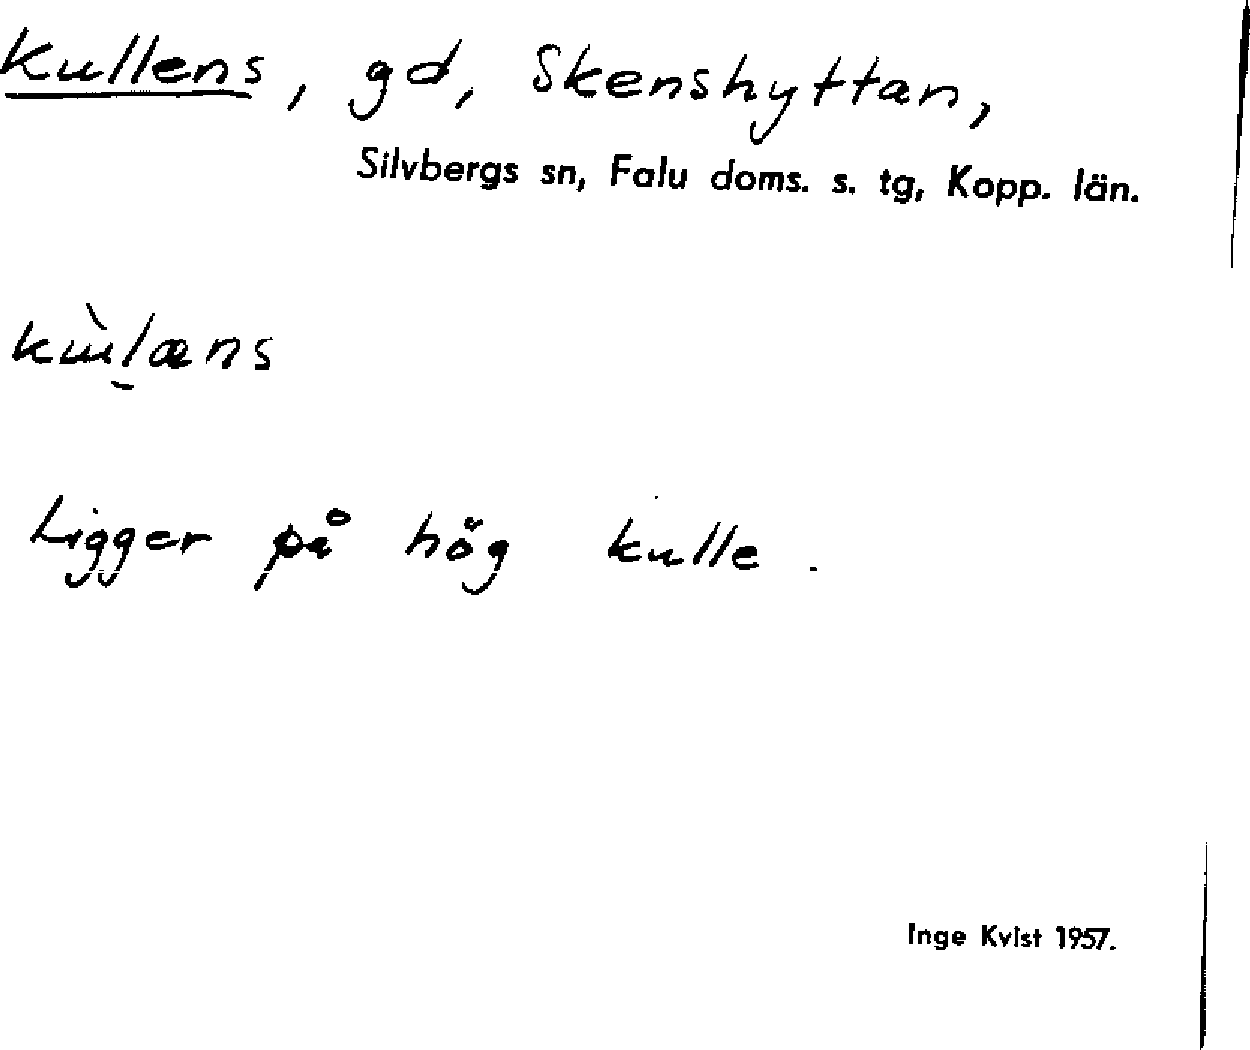 Kullens, gd, Skenshyttan,
Silvbergs sn, Falu doms. s. tg, Kopp. län.
Ligger på hög kulle.
Inge Kvist 1957.